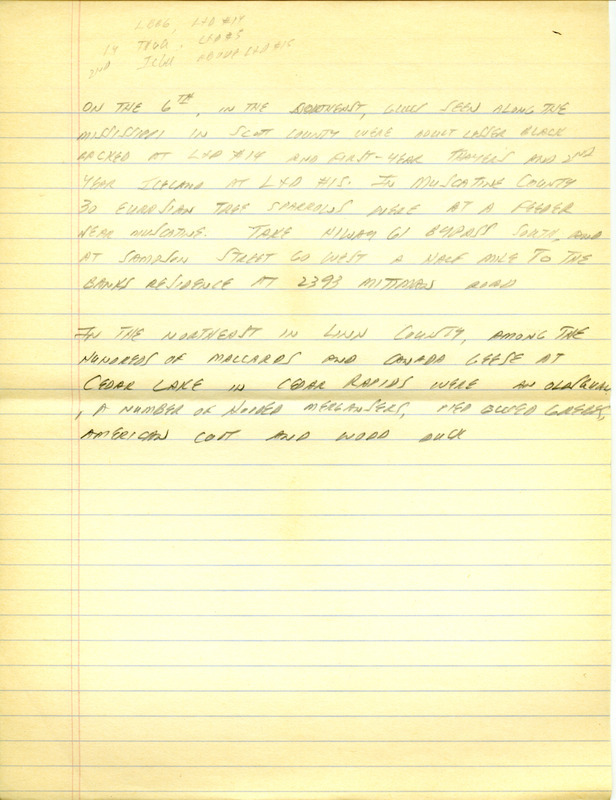 LBBG, L+D #14
1Y THGU, L+D #15
2ND ICGU ABOVE L+D #15
ON THE 6TH, IN THE SOUTHEAST, GULLS SEEN ALONG THE
MISSISSIPPI IN SCOTT COUNTY WERE ADULT LESSER BLACK
BACKED AT L+D #14 AND FIRST-YEAR THAYER'S AND 2ND
YEAR ICELAND AT L+D #15. IN MUSCATINE COUNTY
30 EURASIAN TREE SPARROWS WERE AT A FEEDER
NEAR MUSCATINE. TAKE HIWAY 61 BYPASS SOUTH, AND
AT SAMPSON STREET GO WEST A HALF MILE TO THE
BANKS RESIDENCE AT 2393 MITTMAN ROAD
IN THE NORTHEAST IN LINN COUNTY, AMONG THE
HUNDREDS OF MALLARDS AND CANADA GEESE AT
CEDAR LAKE IN CEDAR RAPIDS WERE AN OLDSQUAW
, A NUMBER OF HOODED MERGANSERS, PIED BILLED GREBES,
AMERICAN COOT AND WOOD DUCK